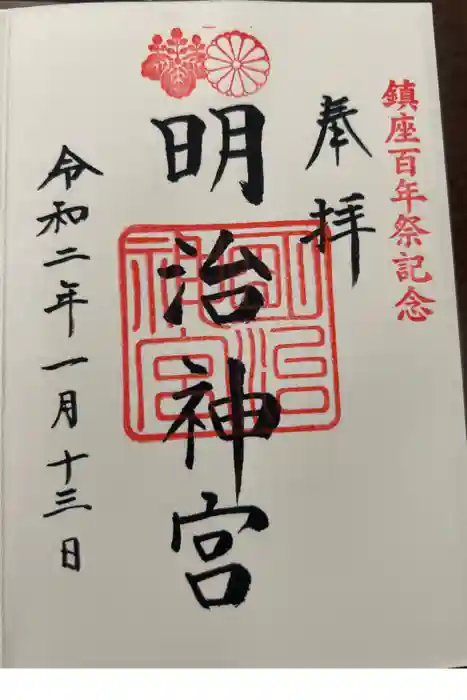 鎮座百年祭記念
奉拝
明治神宮
明治
神宮
令和二年一月十三日